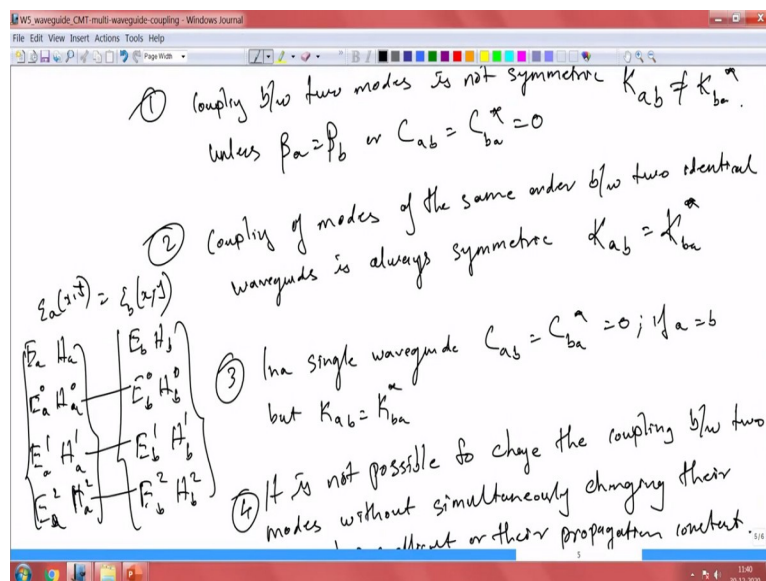 W5_waveguide_CMT-multi-waveguide-coupling - Windows Journal
File Edit View Insert Actions Tools Help
Page Width
① Coupling b/w two modes is not symmetric K_ab ≠ K_ba^*.
unless β_a = β_b or C_ab = C_ba^* = 0
② Coupling of modes of the same order b/w two identical
waveguides is always symmetric K_ab = K_ba^*
ε_a(x,y) = ε_b(x,y)
E_a H_a E_b H_b
E_a^0 H_a^0 — E_b^0 H_b^0
E_a^1 H_a^1 — E_b^1 H_b^1
E_a^2 H_a^2 — E_b^2 H_b^2
③ In a single waveguide C_ab = C_ba^* = 0; if a = b
but K_ab = K_ba^*
④ It is not possible to change the coupling b/w two
modes without simultaneously changing their
or their propagation constant.
5/6
5
11:40